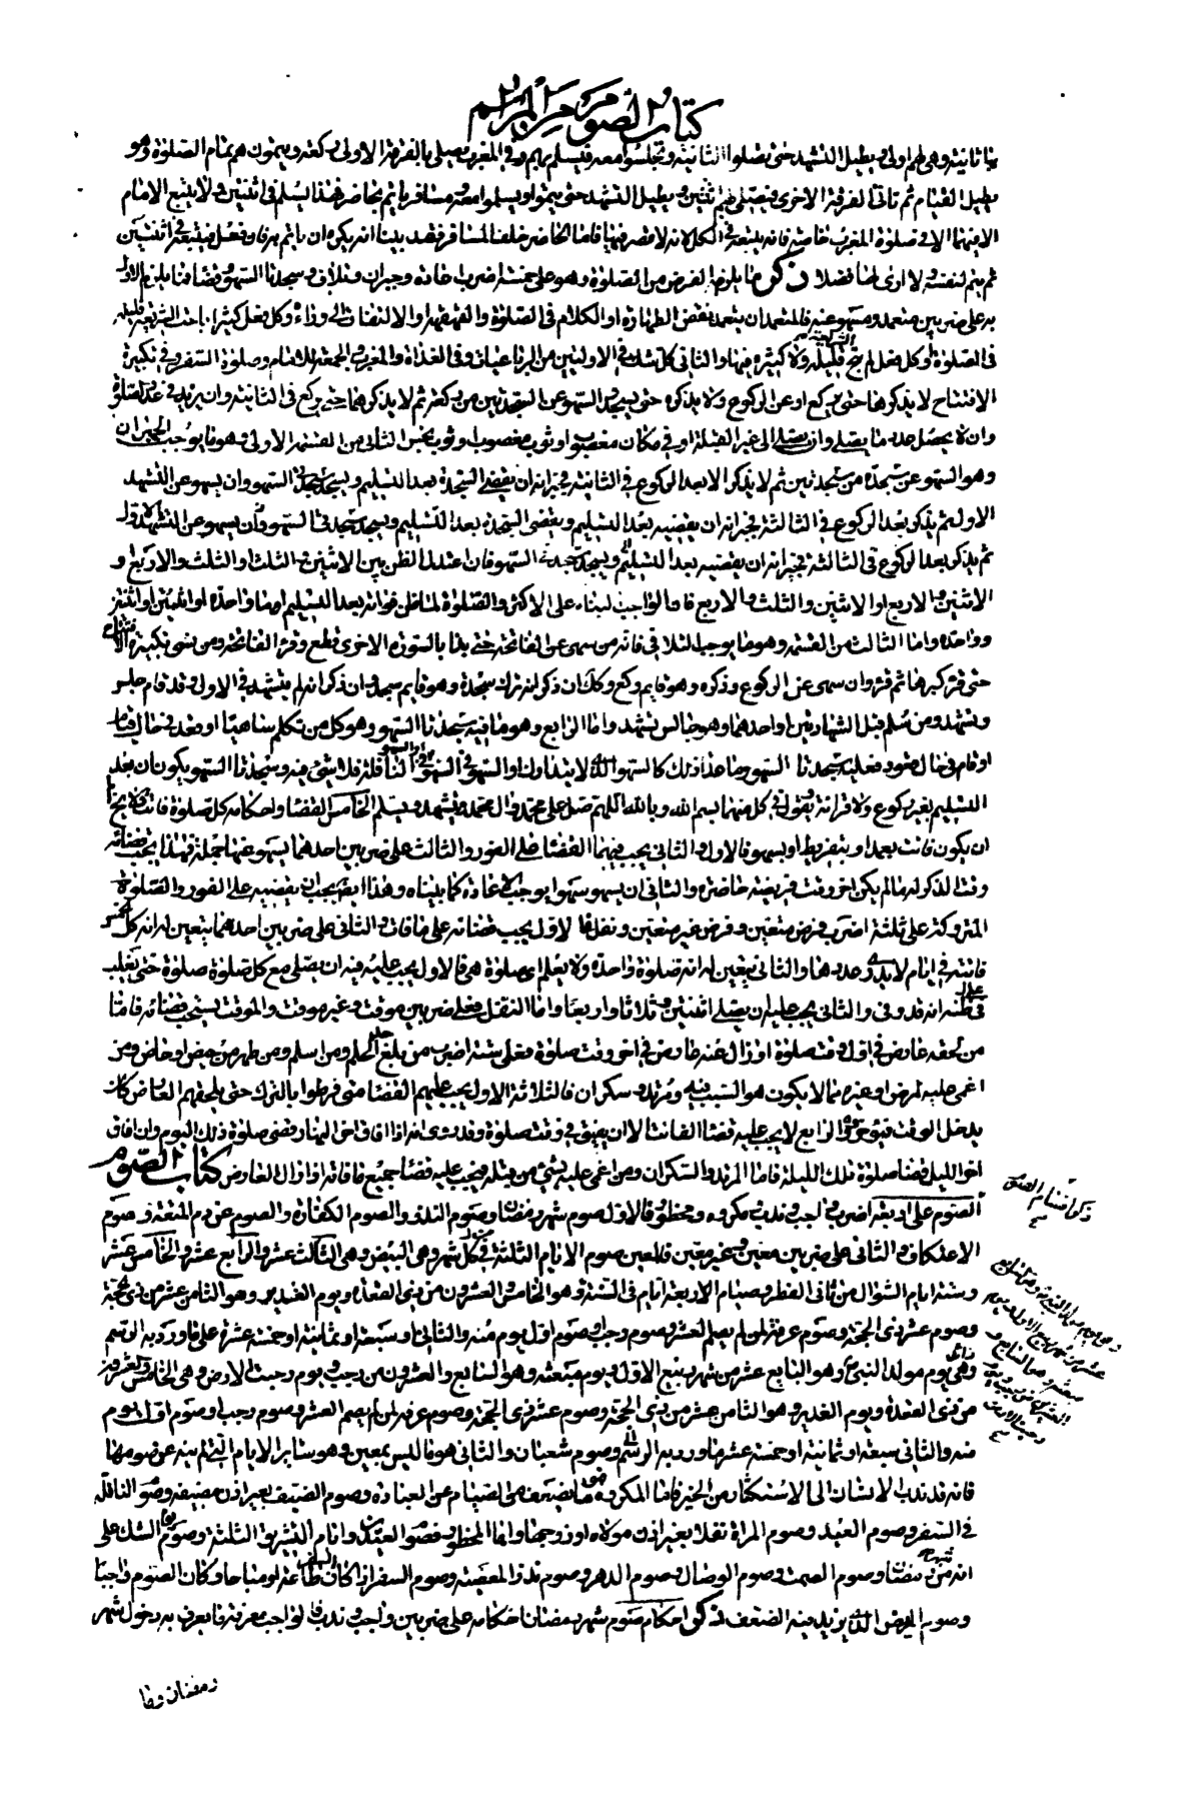 كتاب الصوم من المراسم
ثانية وهي لهم اولى ويطيل التشهد حتى يصلوا الثانية ويجلسوا معه فيسلم بهم وفي المغرب يصلي بالفرقة الاولى ركعة ويتمون هم تمام الصلوة وهو
يطيل القيام ثم تاتي الفرقة الاخرى فيصلي بهم ثنتين ويطيل التشهد حتى يتموا ويسلموا معه ومسافر يأتم بحاضر فهذا يسلم في اثنتين ولا يتبع الامام
الا في صلوة المغرب خاصة فانه يتبعه في الكل لانه لا قصر فيها فاما الحاضر خلف المسافر فقد بينا انه يكره ان يأتم به فان فعل فيتبعه في اثنتين
ثم يتم لنفسه ولا ارى لهذا فضلا ذكر ما يلزم المفرض من الصلوة وهو على خمسة اضرب اعادة وجبران وتلاف وسجدتا السهو وقضا فما يلزم
به على ضربين متعمد ومسهو عنه فالمتعمد ان يتعمد نقض الطهارة او الكلام في الصلوة والقهقهة والالتفات الى وراءه وكل فعل كثير
في الصلوة وكل فعل لم يبح قليله ولا كثيره فيها والثاني كل شك في الاوليين من الرباعيات وفي الغداة والمغرب والجمعة للامام وصلوة السفر وفي تكبيرة
الافتتاح لا يذكرها حتى يركع او عن الركوع ولا يذكره حتى يسجد والسهو عن السجدتين من ركعة ثم لا يذكرهما حتى يركع في الثانية وان يزيد في عدد الصلوة
وان لا يحصل عدد ما يصلي وان يصلي الى غير القبلة او في مكان مغصوب او ثوب مغصوب وثوب نجس الثاني من القسمة الاولى وهو ما يوجب الجبران
وهو السهو عن سجدة من سجدتين ثم لا يذكر الا بعد الركوع في الثانية فجبرانه ان يقضي السجدة بعد التسليم ويسجد سجدتي السهو وان يسهو عن التشهد
الاول ثم يذكر بعد الركوع في الثالثة فجبرانه ان يقضيه بعد التسليم ويقضي السجدة بعد التسليم ويسجد سجدتي السهو وان يسهو عن التشهد الاول
ثم يذكر بعد الركوع في الثالثة فجبرانه ان يقضيه بعد التسليم ويسجد سجدتي السهو فان اعتدل الظن بين الاثنين والثلث او الثلث والاربع و
الاثنين والاربع او الاثنين والثلث والاربع فالواجب البناء على الاكثر والصلوة لما ظن فواته بعد التسليم اما واحدة او اثنتين او اثنتين
وواحدة واما الثالث من القسمة وهو ما يوجب التلافي فانه من سهى عن الفاتحة حتى بدا بالسورة الاخرى قطع وقرء الفاتحة ومن نسي تكبيرة الافتتاح
حتى قرء كبرها ثم قرء وان سهى عن الركوع وذكره وهو قايم ركع وكك ان ذكر انه ترك سجدة وهو قايم سجد وان ذكر انه لم يتشهد في الاول وقد قام جلس
وتشهد ومن سلم قبل الشهادتين او احدهما وهو جالس تشهد واما الرابع وهو ما فيه سجدتا السهو وهو كل من تكلم ساهيا او قعد في حال قيام
او قام في حال قعود فعليه سجدتا السهو وما عدا ذلك كالسهو لا يتدارك او السهو في السهو او السهو في النافلة فلا شئ فيه وسجدتا السهو يكون بعد
التسليم بغير ركوع ولا قرائة ويقول في كل منهما بسم الله وبالله اللهم صل على محمد وال محمد ويتشهد ويسلم الخامس القضا واحكامه كل صلوة فاتت فلا يخ
ان يكون فاتت بعمد او بتفريط او بسهو فالاول والثاني يجب فيهما القضا على الفور والثالث على ضربين احدهما يسهو عنها جملة فهذا يجب قضائه
وقت الذكر له ما لم يكن اخر وقت فريضة حاضرة والثاني ان يسهو سهوا يوجب الاعادة كما بيناه وهذا ايضا يجب ان يقضيه على الفور والصلوة
المتروكة على ثلثة اضرب فرض متعين وفرض غير متعين ونفل فالاول يجب قضائه على ما فات والثاني على ضربين احدهما يتعين له انه كل خمس
فاتته في ايام لا يدري عددها والثاني يتعين له انه صلوة واحدة ولا يعلم اي صلوة هي فالاول يجب عليه فيه ان يصلي مع كل صلوة صلوة حتى يغلب
على ظنه انه قد وفى والثاني يجب عليه ان يصلي اثنتين وثلاثا واربعا واما النفل فعلى ضربين موقت وغير موقت والموقت يستحب قضائه فاما
من لحقه عارض في اول وقت صلوة او زال عنه عارض في اخر وقت صلوة فعلى ستة اضرب من بلغ الحلم ومن اسلم ومن طهر من حيض او نفاس ومن
اغمى عليه لمرض او غيره مما لا يكون هو السبب فيه ومرتد وسكران فالثلاثة الاول يجب عليهم القضا متى فرطوا بالترك حتى يلحقهم العارض كان
يدخل الوقت فيتوخر والرابع لا يجب عليه قضا الفائت الا ان يفيق في وقت صلوة وقد روى انه اذا افاق اخر النهار قضى صلوة ذلك اليوم وان افاق
اخر الليل قضا صلوة تلك الليلة فاما المرتد والسكران ومن اغمى عليه بشئ من قبله فيجب عليه قضا جميع ما فاته اذا زال العارض كتاب الصوم
الصوم على اربعة اضرب واجب وندب ومكروه ومحظور فالاول صوم شهر رمضان وصوم النذر والصوم الكفارة والصوم عن دم المتعة وصوم
الاعتكاف والثاني على ضربين معين وغير معين فالمعين صوم الايام الثلثة في كل شهر وهي البيض وهي الثالث عشر والرابع عشر والخامس عشر
وستة ايام الشوال من ثاني الفطر وصيام الاربعة ايام في السنة وهو الخامس والعشرون من ذي القعدة ويوم الغدير وهو الثامن عشر من ذي حجة
وصوم عشر ذي الحجة وصوم عرفة لمن لم يصم العشر وصوم رجب او صوم اول يوم منه والثاني او سبعة او ثمانية او خمسة عشرة على ما ورد به الرسم
وهي يوم مولد النبي وهو السابع عشر من شهر ربيع الاول ويوم مبعثه وهو السابع والعشرون من رجب ويوم دحيت الارض وهي الخامس والعشرون
من ذي القعدة ويوم الغدير وهو الثامن عشر من ذي الحجة وصوم عشر ذي الحجة وصوم عرفة لمن لم يصم العشر وصوم رجب او صوم اول يوم
منه والثاني سبعة او ثمانية او خمسة عشر ما ورد به الرسم وصوم شعبان والثاني هو ما ليس بمعين وهو ساير الايام التي لم ينه عن صومها
فانه قد ندب الانسان الى الاستكثار من الخير فاما المكروه ما يضعف من الصيام عن العبادة وصوم الضيف بغير اذن مضيفه وصوم النافلة
في السفر وصوم العبد وصوم المراة نفلا بغير اذن مولاه او زوجها واما المحظور فصوم العيدين وايام التشريق الثلثة وصوم يوم الشك على
انه من شهر رمضان وصوم الصمت وصوم الوصال وصوم الدهر وصوم نذر المعصية وصوم السفر اذا كان السفر طاعة او مباحا وكان الصوم واجبا
وصوم المريض الذي يزيد فيه الضعف ذكر احكام صوم شهر رمضان احكامه على ضربين واجب وندب فالواجب معرفة ما يعرف به دخول شهر
ذكر اقسام الصوم
رمضان وما